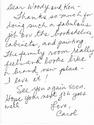 Dear Woody and Ken -
Thanks so much for
doing such a fabulous
job on the bookshelves,
cabinets, and painting
the family room. Really
feels & looks like
a brand new place -
I love it!
See you again soon
Hope your next job goes
well.
Love,
Carol